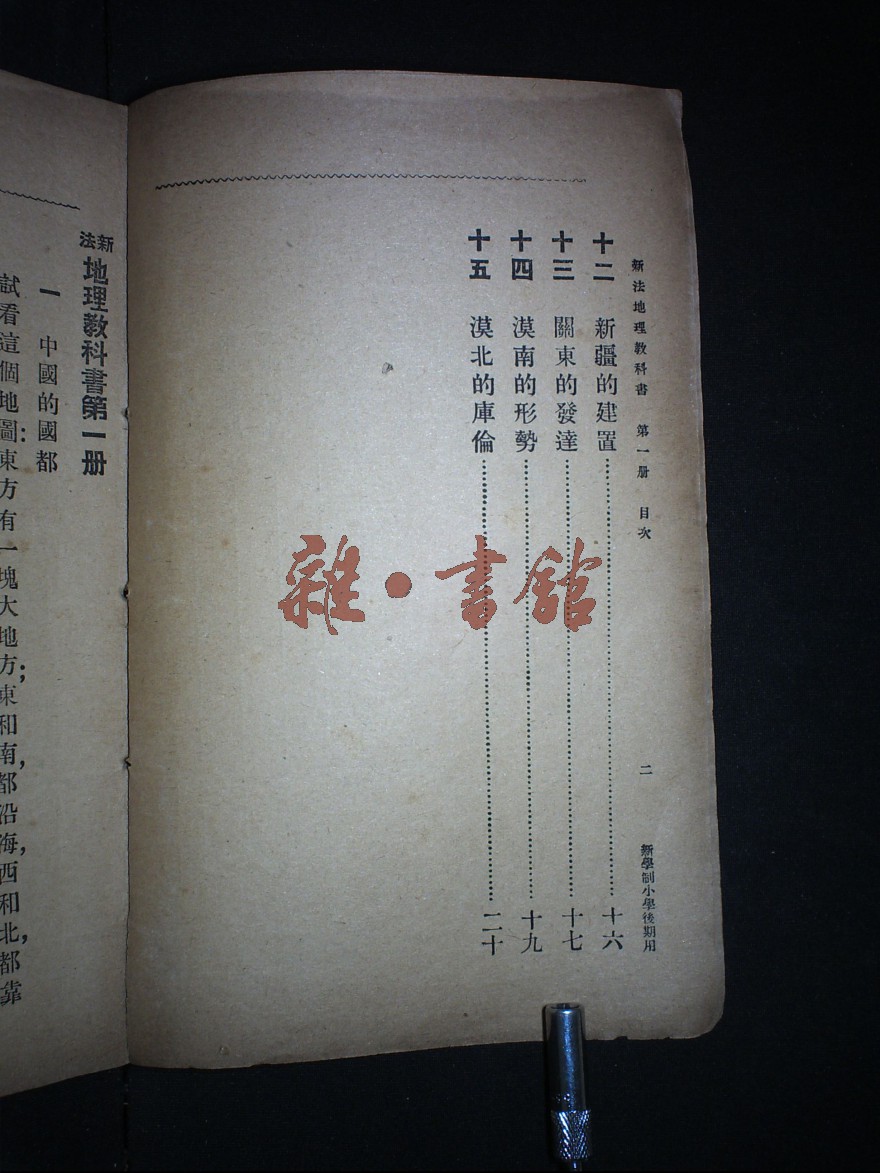 新法地理敎科書 第一册 目次 二 新學制小學後期用
十二 新疆的建置 十六
十三 關東的發達 十七
十四 漠南的形勢 十九
十五 漠北的庫倫 二十
新法地理敎科書第一册
一 中國的國都
試看這個地圖：東方有一塊大地方；東和南，都沿海，西和北，都靠
雜・書館